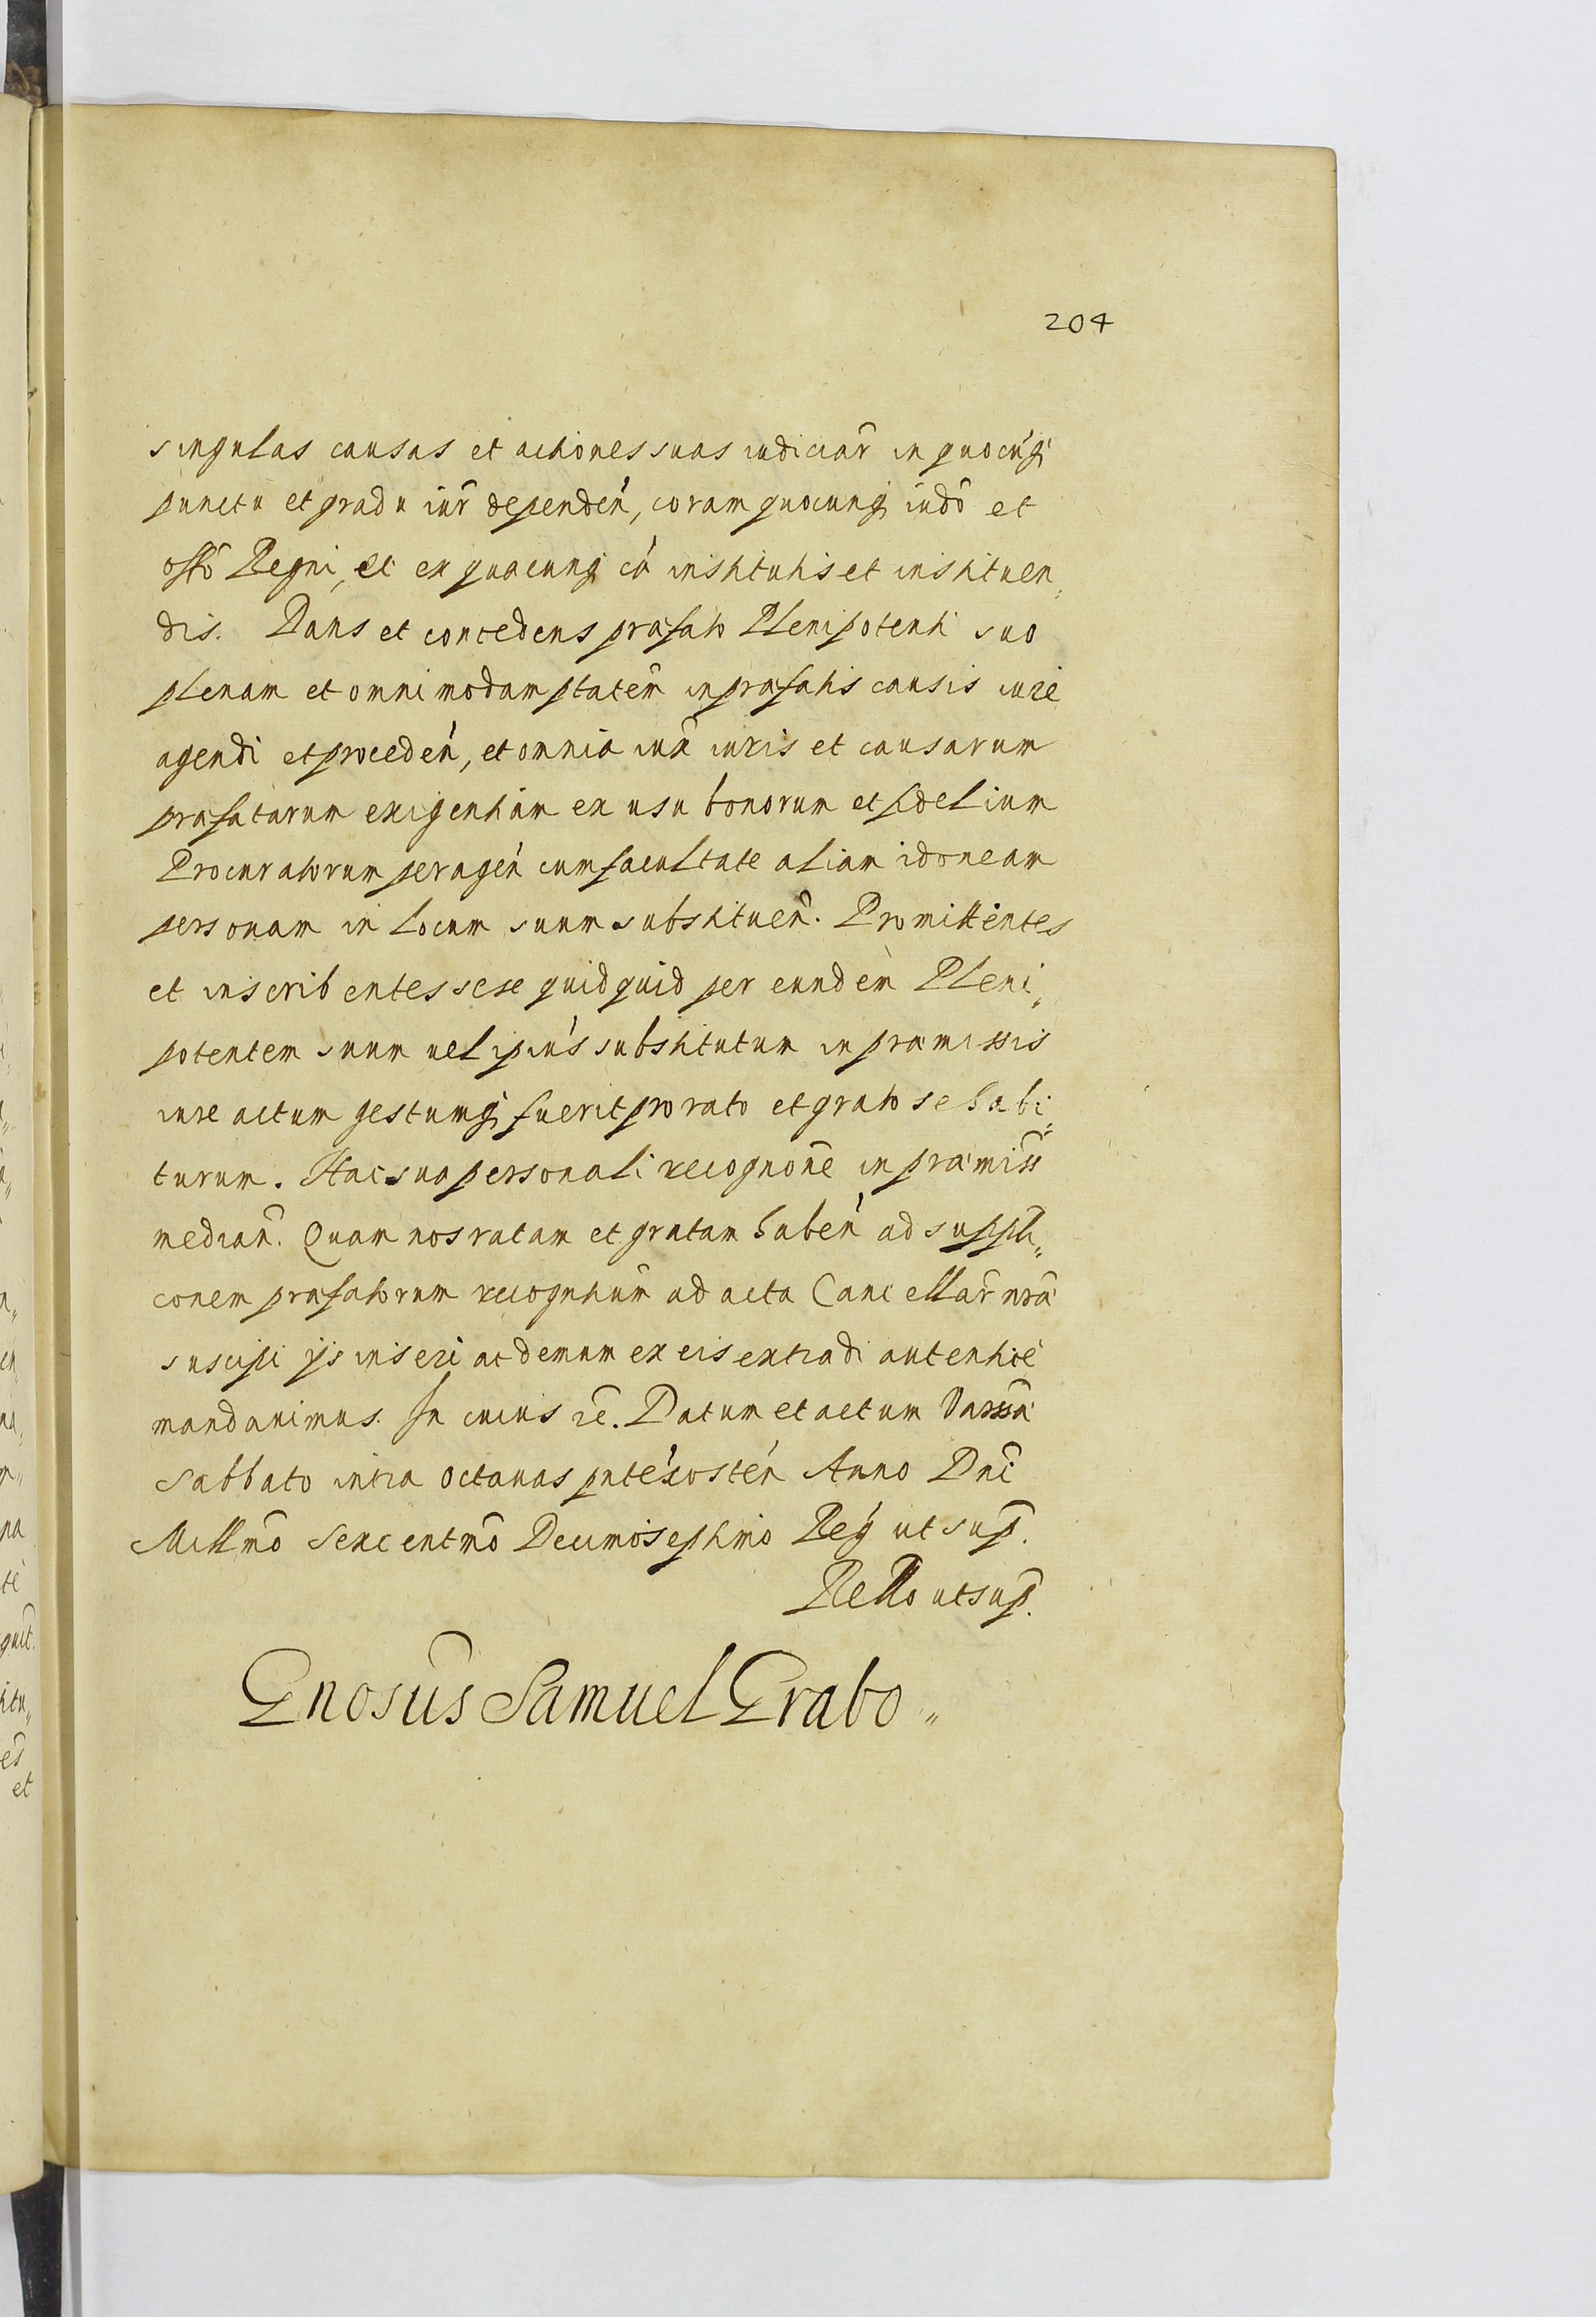 204
singulas causas et actiones suas iudiciar̃ in quocúnq́
punctu et gradu iur̃ dependeń, coram quocunq iudõ et
offõ Regni, et ex quacunq cá institutis et instituen„
dis. Dans et concedens præfato Plenipotenti suo
plenam et omnimodam ptatem̃ in præfatis causis iure
agendi et procedeń, et omnia iux̃ iuris et causarum
præfatarum exigentiam ex usu bonorum et fidelium
Procuratorum perageń cum facultate aliam idoneam
personam in locum suum substitueñ. Promittentes
et inscribentes sese quidquid per eundem Pleni„
potentem suum uel ipiús substitutum in præmissis
iure actum gestumq́ fuerit pro rato et grato se habi„
turum. Hac sua personali recognoñe in præmiss̃
mediañ. Quam nos ratam et gratam habeń ad suppli„
conem præfatorum recognitium̃ ad acta Cancellar̃ nrã
suscipi ijs inseri ac demum ex eis extradi autenticè
mandauimus. In cuius rẽ. Datum et actum Varssã
Sabbato intra octauas pntécosteń Anno Dnĩ
Millmõ Sexcentmõ Decimoseptimo Reǵ ut sup̃.
Rello ut sup̃.
Gnosus̃ Samuel Grabo„